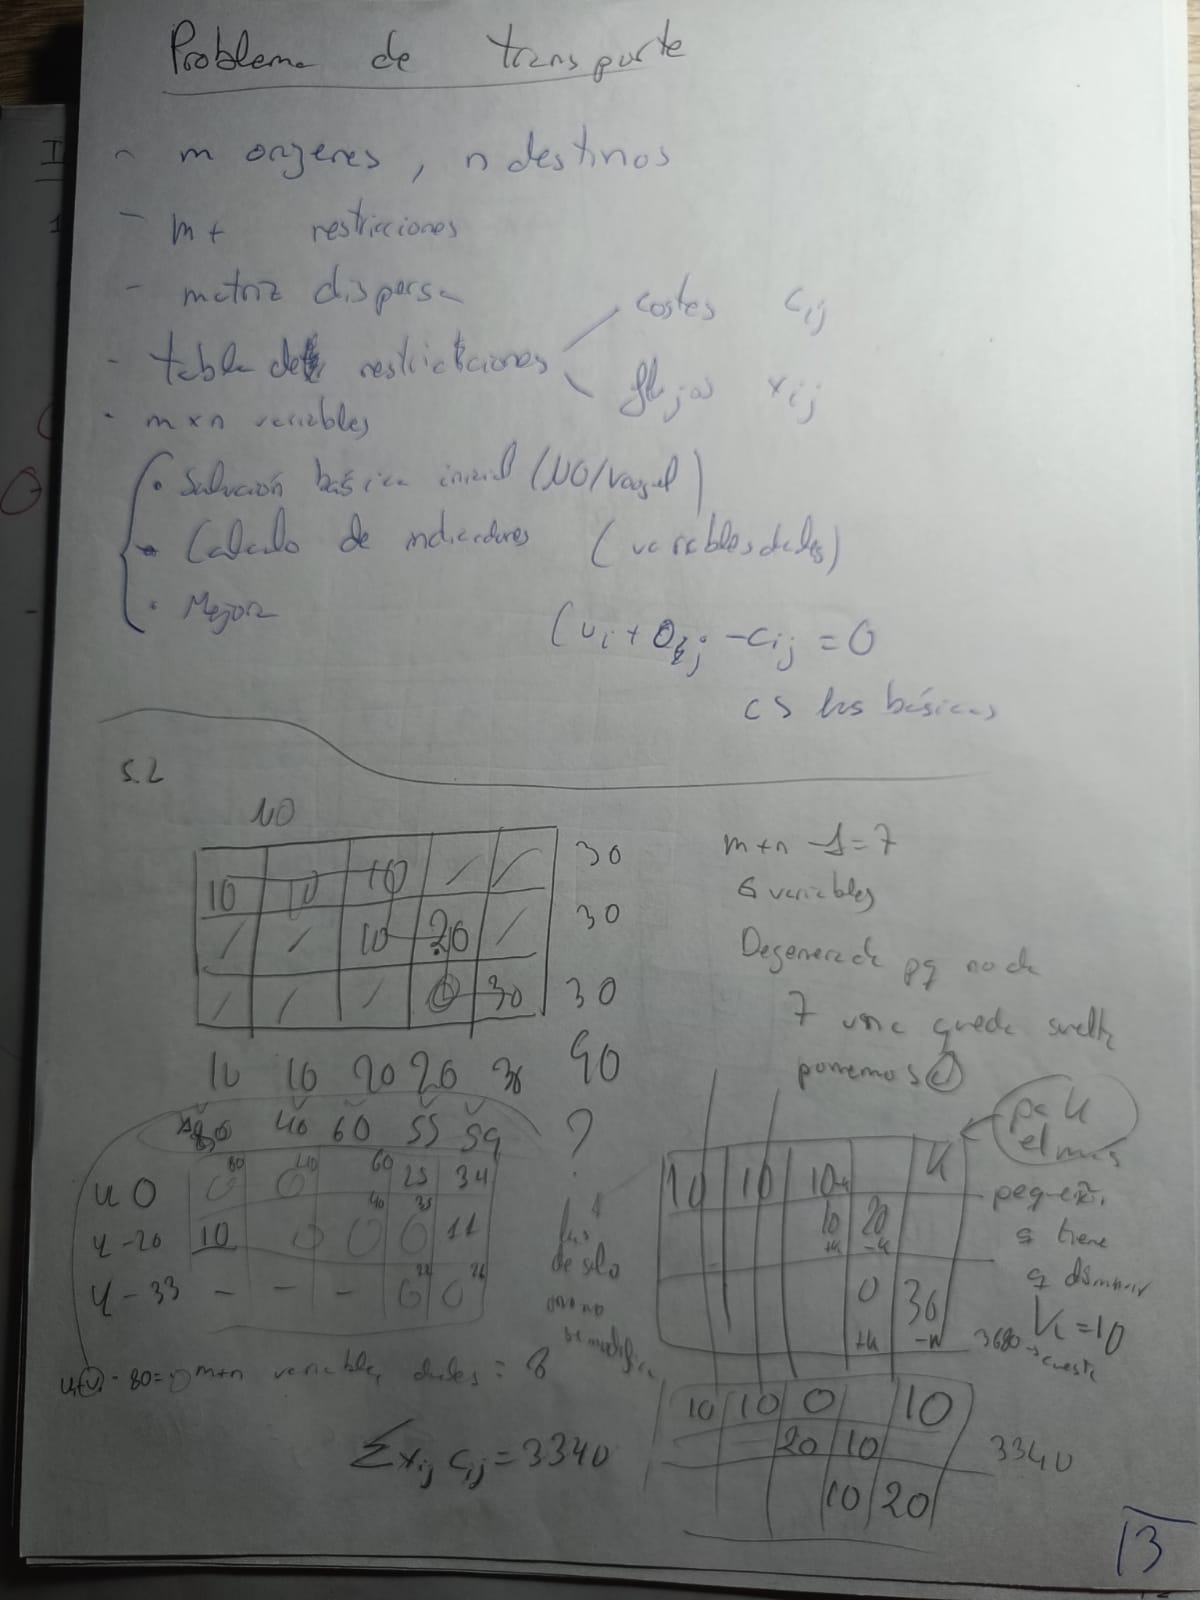 Problema de transporte
- m orígenes, n destinos
- m+ restricciones
- matriz dispersa
costes cij
- tabla de restricciones
flujos xij
· m×n variables
· Solución básica inicial (NO/Vogel)
- Calculo de indicadores (variables duales)
· Mejora
(ui + vj - cij = 0
en las básicas
5.2
NO
10 10 10 / / 30
/ / 10 20 / 30
/ / / 0 30 30
10 10 20 20 30 90
m+n-1=7
6 variables
Degenerada pq no da
7 una queda suelta
ponemos 0
80 40 60 55 59 ?
80 40 60
u 0 0 0 25 34
40 35
u -20 10 0 0 0 11
22 26
u -33 - - - 0 0
las
de solo
uno no
se modifica
m+n variables duales = 8
- 80 = 0
∑xij cij = 3340
10 10 10-u u
10+u 20-u
0+u 30-u
3680 → cuesta
pa u
el más
pequeño
q tiene
q disminuir
u=10
10 10 0 10
20 10
10 20
3340
13